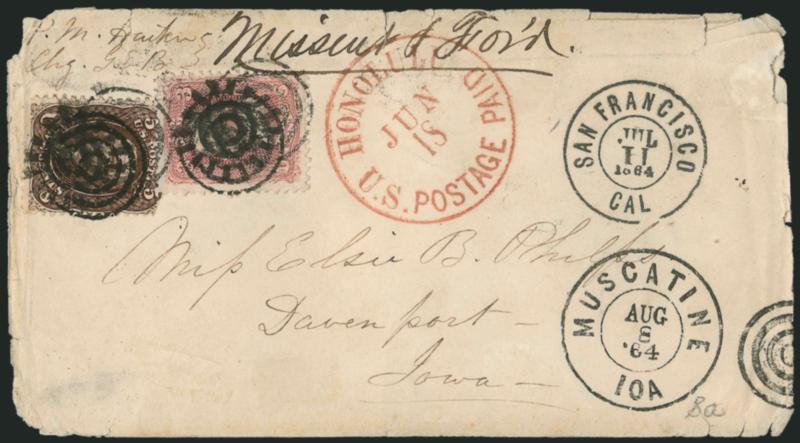 P. M. 
Chg. 
Missent & For'd.
HONOLULU
JUN
18
U.S. POSTAGE PAID
SAN FRANCISCO
JUL
11
1864
CAL
Miss Elsie B. Phelps
Davenport —
Iowa —
MUSCATINE
AUG
8
'64
IOA
8a